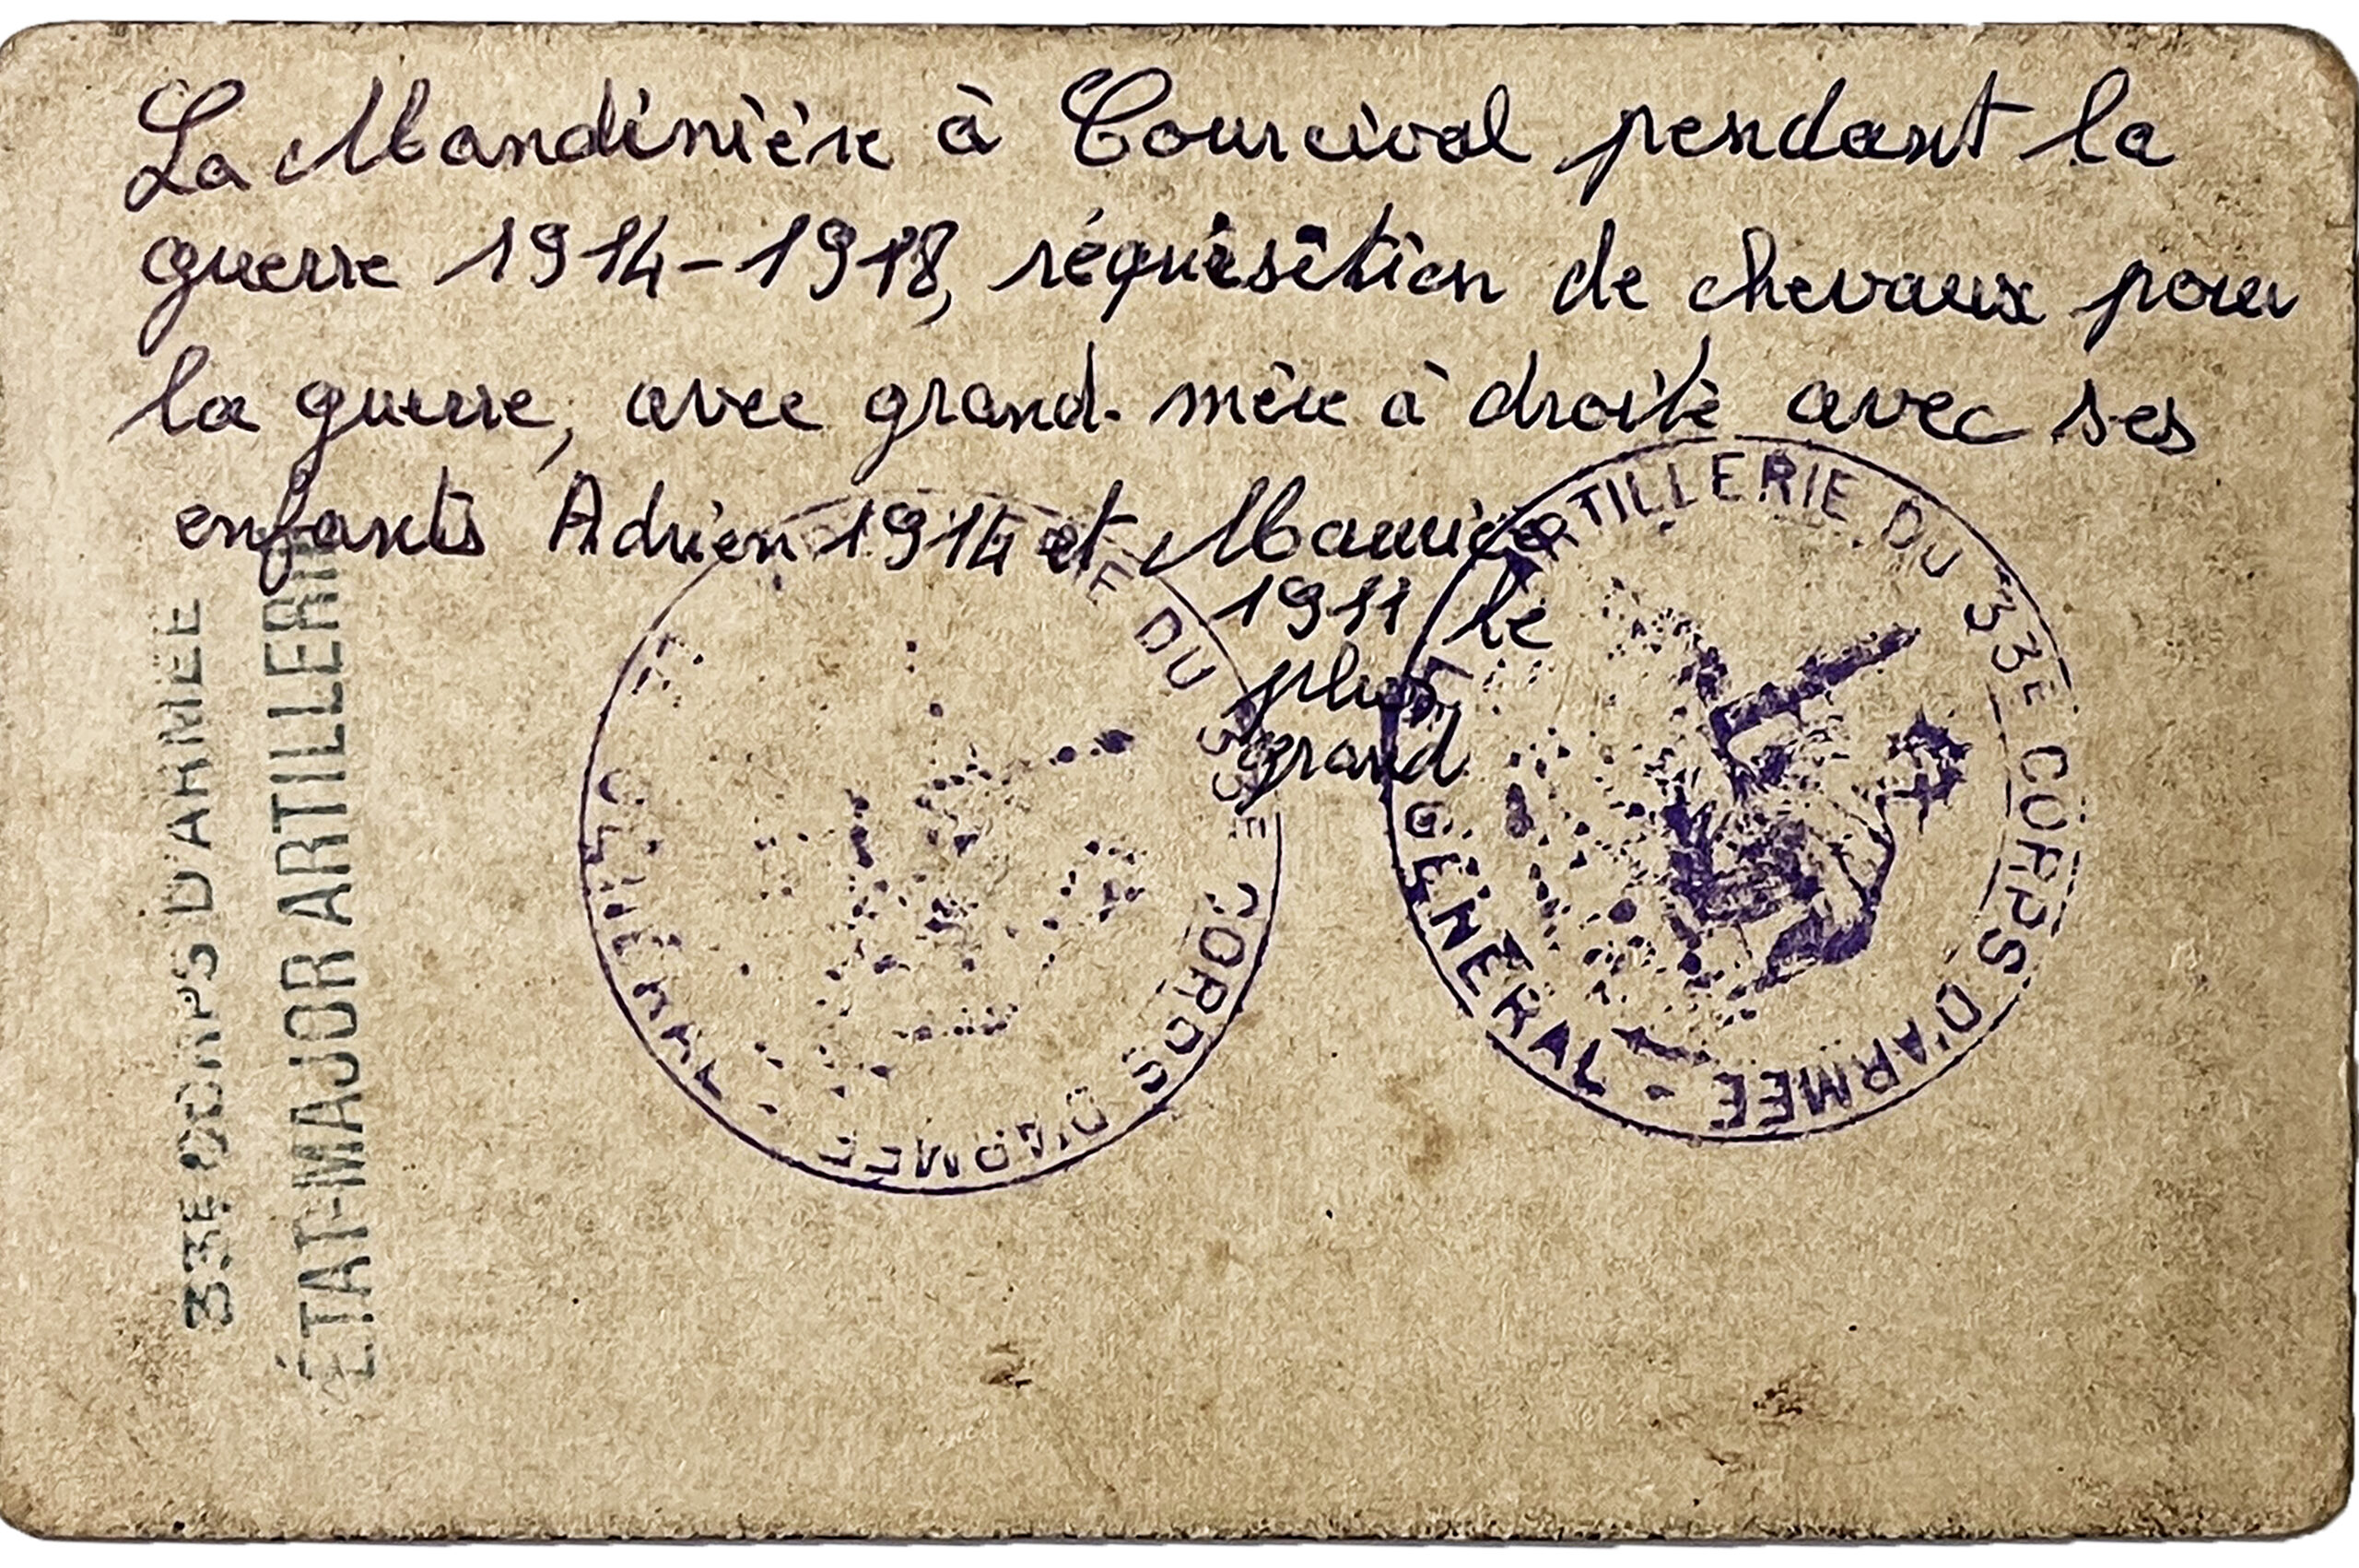 La Mandinière à Courcival pendant la
guerre 1914-1918, réquisition de chevaux pour
la guerre, avec grand-mère à droite avec ses
enfants Adrien 1914 et Maurice
1911 le
plus
grand
33E CORPS D'ARMÉE
ÉTAT-MAJOR ARTILLERIE
DU 33E CORPS D'ARMEE -
ARTILLERIE DU 33E CORPS D'ARMEE - GÉNÉRAL